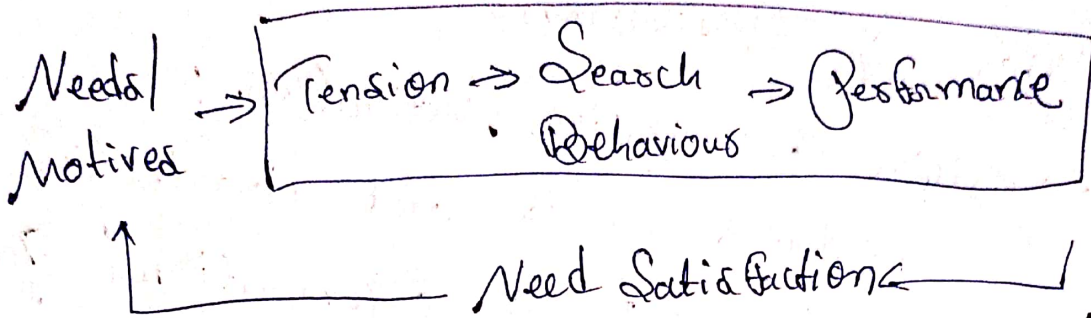 Needs/
Motives → Tension → Search Behaviour → Performance
Need Satisfaction